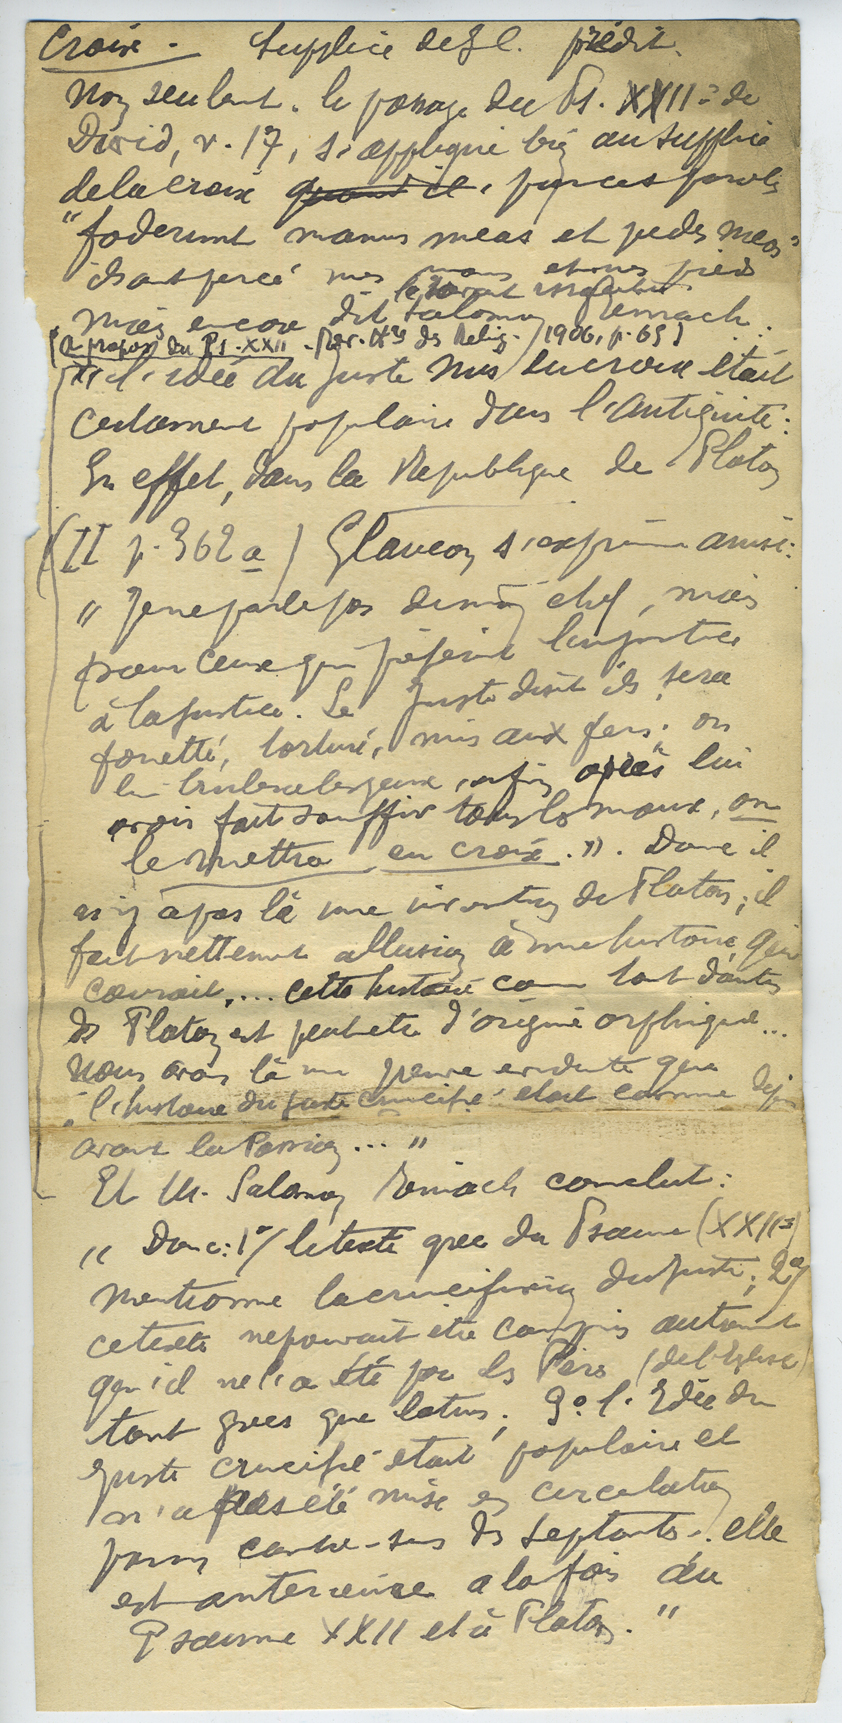 Croix. - Supplice de J.C. prédit.
Non seulemt. le passage du Ps. XXIIe de
David, v. 17, s'applique bien au supplice
de la croix par ces paroles
"foderunt manus meas et pedes meos"
ils ont percé mes mains et mes pieds
mais encore dit le savant Salomon Reinach:
(A propos du Ps. XXII - Rev. Hre des Relig. 1906, p. 65)
"l'idée du juste mis en croix était
certainement populaire dans l'antiquité:
En effet, dans la République de Platon
(II p. 362 a) Glaucon s'exprime ainsi:
"Je ne parle pas de mon chef, mais
pour ceux qui préfèrent l'injustice
à la justice. Le Juste disent ils, sera
fouetté, torturé, mis aux fers; on
lui brulera les yeux, enfin après lui
avoir fait souffrir tous les maux, on
le mettra en croix.". Donc il
n'y a pas là une invention de Platon; il
fait nettement allusion à une histoire qui
courait.... cette histoire comme tant d'autres
de Platon est peut etre d'origine orphique...
Nous avons là une preuve evidente que
"l'histoire du juste crucifié" etait connue déjà
avant la Passion... "
Et M. Salomon Reinach conclut:
"Donc: 1°/ le texte grec du Psaume (XXIIe)
mentionne la crucifixion du juste; 2°/
ce texte ne pouvait être compris autrement
qu'il ne l'a été par les Pères (de l'Eglise)
tant grecs que latins; 3° l'Idée du
juste crucifié etait populaire et
n'a pas été mise en circulation
par un contre-sens des Septante.: elle
est anterieure a la fois au
Psaume XXII et à Platon."